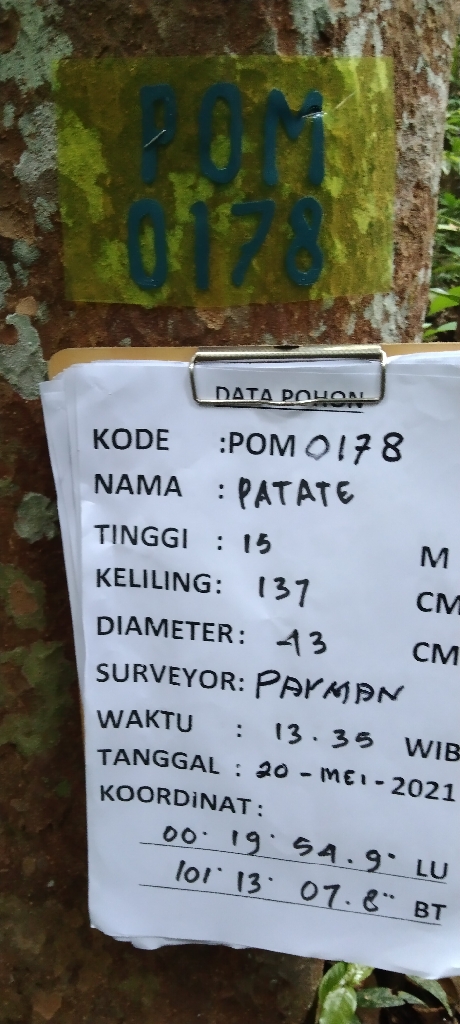 POM
0178
DATA POHON
KODE :POM 0178
NAMA : PATATE
TINGGI : 15 M
KELILING: 137 CM
DIAMETER: 43 CM
SURVEYOR: PAYMAN
WAKTU : 13.35 WIB
TANGGAL : 20-MEI-2021
KOORDiNAT:
00° 19' 54.9" LU
101° 13' 07.8" BT